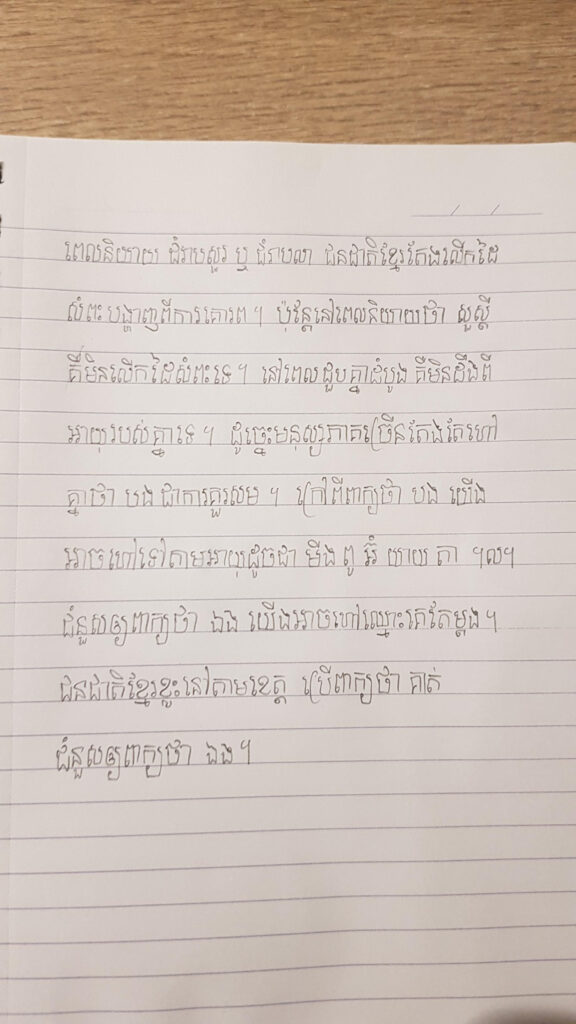 ពេលនិយាយ ជំរាបសួរ ឬ ជំរាបលា ជនជាតិខ្មែរតែងលើកដៃ
សំពះបង្ហាញពីការគោរព។ ប៉ុន្តែនៅពេលនិយាយថា សួស្តី
គឺមិនលើកដៃសំពះទេ។ នៅពេលជួបគ្នាដំបូង គឺមិនដឹងពី
អាយុរបស់គ្នាទេ។ ដូច្នេះមនុស្សភាគច្រើនតែងតែហៅ
គ្នាថា បង ជាការគួរសម ។ ក្រៅពីពាក្យថា បង យើង
អាចហៅទៅតាមអាយុដូចជា មីង ពូ អ៊ំ យាយ តា ។ល។
ជំនួសឲ្យពាក្យថា ឯង យើងអាចហៅឈ្មោះគេតែម្តង។
ជនជាតិខ្មែរខ្លះនៅតាមខេត្ត ប្រើពាក្យថា គាត់
ជំនួសឲ្យពាក្យថា ឯង។